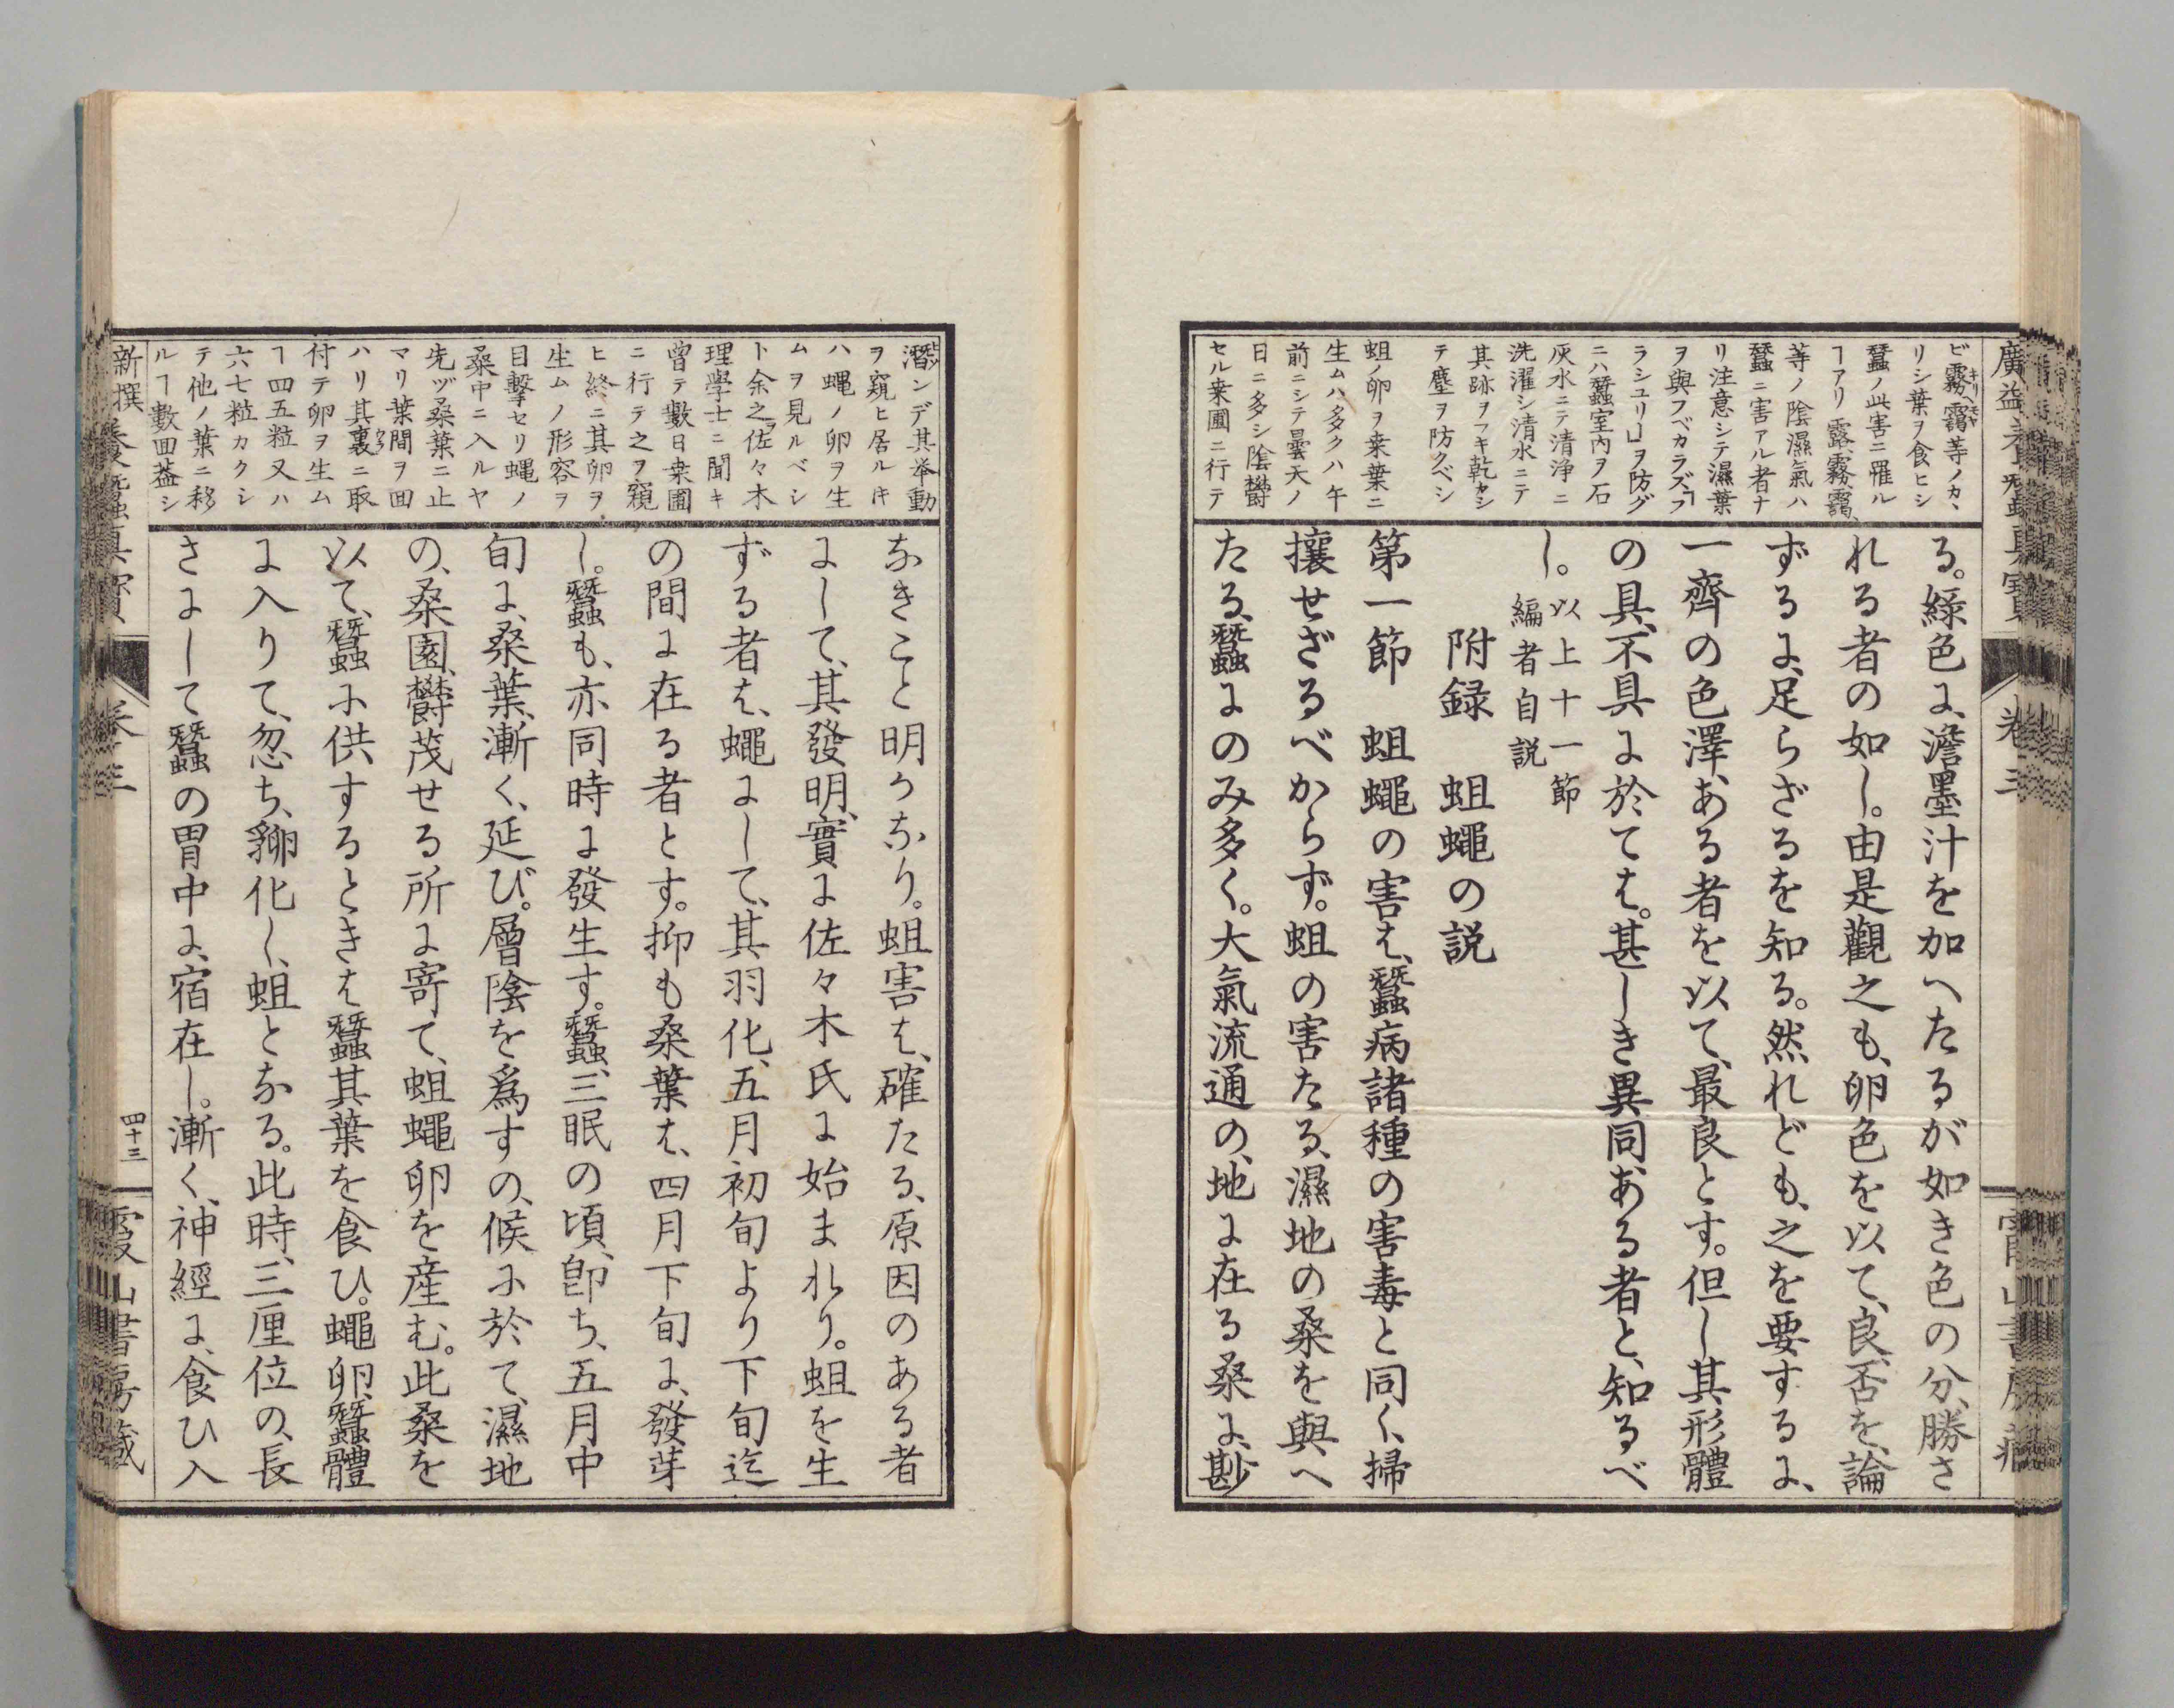 廣益養蠶真寶
卷三
ビ霧靄等ノカヽ
リシ葉ヲ食ヒシ
蠶ノ此害ニ罹ル
ヿアリ露、霧、靄、
等ノ陰濕氣ハ
蠶ニ害アル者ナ
リ注意シテ濕葉
ヲ與フベカラズ「フ
ラシユリー」ヲ防グ
ニハ蠶室内ヲ石
灰水ニテ清浄ニ
洗濯シ清水ニテ
其跡ヲフキ乾カシ
テ塵ヲ防クベシ
蛆ノ卵ヲ桒葉ニ
生ムハ多クハ午
前ニシテ曇天ノ
日ニ多シ陰欝
セル桒圃ニ行テ
る。緑色に、澹墨汁を加へたるが如き色の分、勝さ
れる者の如し。由是觀之も、卵色を以て、良、否を、論
ずるに、足らざるを知る。然れども、之を要するに、
一齊の色澤、ある者を以て、最良とす。但し其形體
の具、不具に於ては。甚しき異同、ある者と、知るべ
し。
以上十一節
編者自説
附録　蛆蠅の説
第一節　蛆蠅の害は、蠶病諸種の害毒と同く、掃
攘せざるべからず。蛆の害たる、濕地の桑を與へ
たる、蠶にのみ多く。大氣流通の、地に在る桑に、尠
潛ンデ其挙動
ヲ窺ヒ居ルキ
ハ蠅ノ卵ヲ生
ムヲ見ルベシ
ト余之ヲ佐々木
理學士ニ聞キ
曽テ數日桒圃
ニ行テ之ヲ窺
ヒ終ニ其卵ヲ
生ムノ形容ヲ
目撃セリ蠅ノ
桑中ニ入ルヤ
先ヅ桑葉ニ止
マリ葉間ヲ囬
ハリ其裏ニ取
付テ卵ヲ生ム
ヿ四五粒又ハ
六七粒カクシ
テ他ノ葉ニ移
ルヿ數囬葢シ
なきこと明かなり。蛆害は、確たる、原因のある者
にして、其發明、實に佐々木氏に始まれり。蛆を生
ずる者は、蠅にして、其羽化、五月初旬より下旬迄
の間に在る者とす。抑も桑葉は、四月下旬に、發芽
し。蠶も、亦同時に發生す。蠶、三眠の頃、卽ち、五月中
旬に、桑葉、漸く、延び。層陰を爲すの、候に於て、濕地
の、桑園、欝茂せる所に寄て、蛆蠅卵を産む。此桑を
以て、蠶に供するときは蠶其葉を食ひ。蠅卵、蠶體
に入りて、忽ち、孵化し、蛆となる。此時、三厘位の、長
さにして蠶の胃中に、宿在し。漸く、神經に、食ひ入
新撰養蠶真寶
卷三
四十三
霞山書房藏